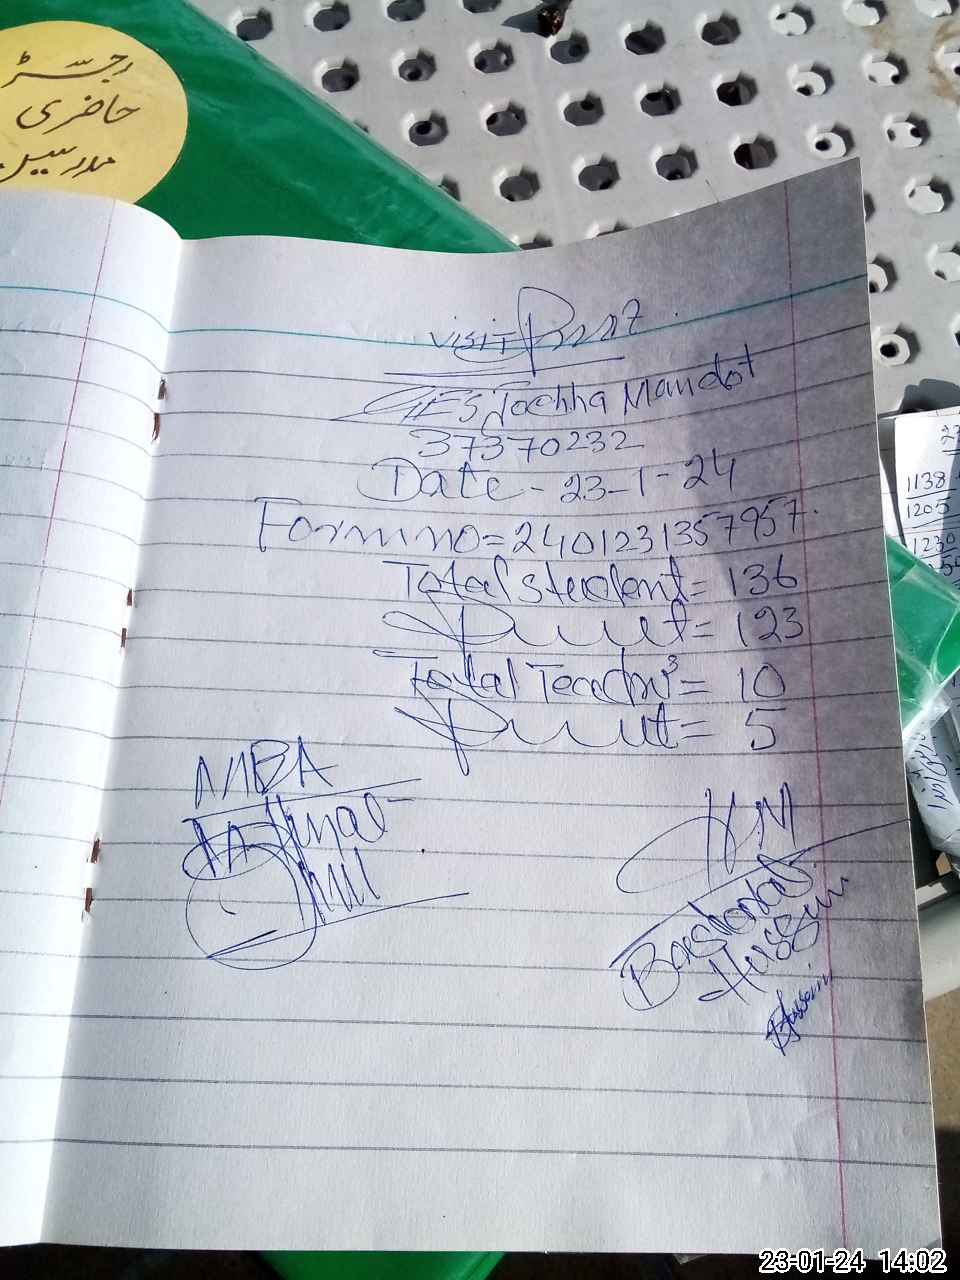 رجسٹر
حاضری
مدرسین
VISIT
GES Jochha Mandot
37370232
Date - 23-1-24
Form no = 2401231357957.
Total student = 136
= 123
Total Teachrs = 10
= 5
NIBA
HM
Hussain
Hussain
1138
1205
1230
23-01-24 14:02